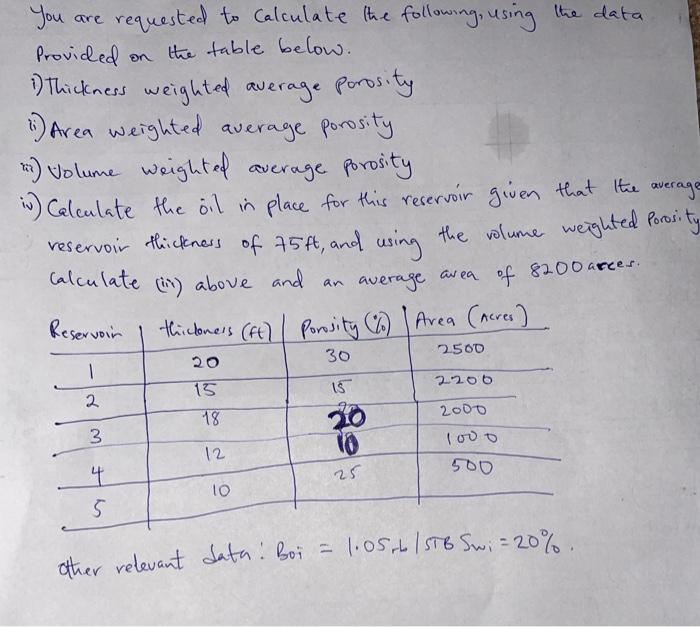 You are requested to Calculate the following, using the data
Provided on the table below.
i) Thickness weighted average porosity
ii) Area weighted average porosity
iii) Volume weighted average porosity
iv) Calculate the oil in place for this reservoir given that the average
reservoir thickness of 75ft, and using the volume weighted Porosity
Calculate (iii) above and an average area of 8200 acres.
Reservoir thickness (ft) Porosity (%) Area (Acres)
1 20 30 2500
2 15 15 2200
3 18 20 2000
4 12 10 1000
5 10 25 500
other relevant data: Boi = 1.05rb/STB Swi = 20%.